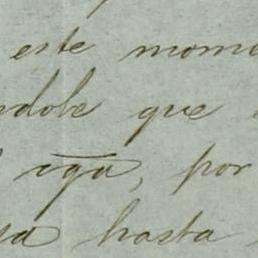 este mome
ndole que
oga, por
sa hasta